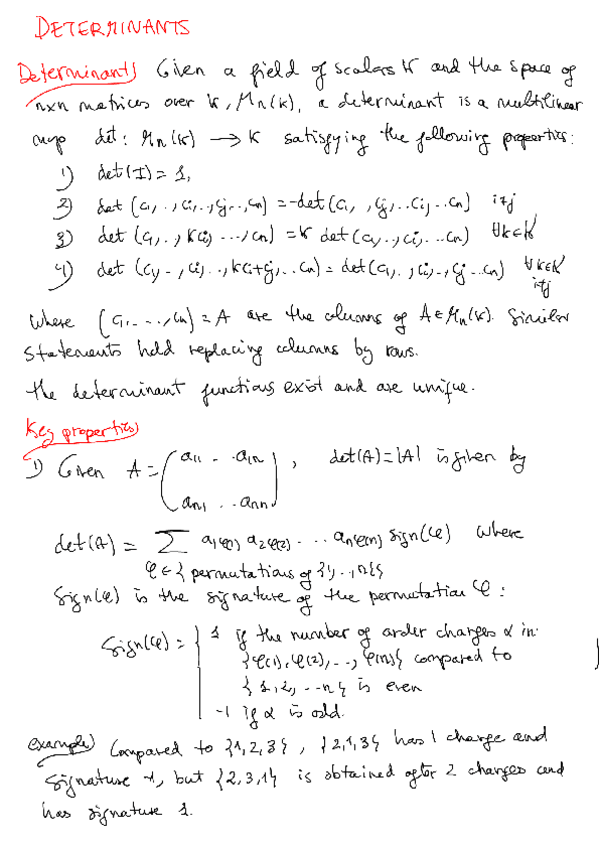 DETERMINANTS
Determinant) Given a field of scalars K and the space of
nxn matrices over K, Mn(K), a determinant is a multilinear
map det: Mn(K) → K satisfying the following properties:
1) det(I) = 1,
2) det (c1, .., ci, .., cj, .., cn) = -det (c1, .., cj, .. ci, .. cn) i≠j
3) det (c1, .., kci, ..., cn) = k det (c1, .., ci, .. cn) ∀k∈K
4) det (c1, .., ci, .., kci+cj, .. cn) = det (c1, .., ci, .., cj .. cn) ∀k∈K
i≠j
where (c1, ..., cn) = A are the columns of A∈Mn(K). Similar
statements hold replacing columns by rows.
The determinant functions exist and are unique.
Key properties)
1) Given A = (a11 .. a1n
an1 .. ann), det(A) = |A| is given by
det(A) = Σ a1φ(1) a2φ(2) ... anφ(n) sign(φ) where
φ∈{permutations of {1, .., n}}
Sign(φ) is the signature of the permutation φ:
Sign(φ) = { 1 if the number of order changes α in
{φ(1), φ(2), .., φ(n)} compared to
{1, 2, ... n} is even
-1 if α is odd.
example) Compared to {1,2,3}, {2,1,3} has 1 change and
signature -1, but {2,3,1} is obtained after 2 changes and
has signature 1.